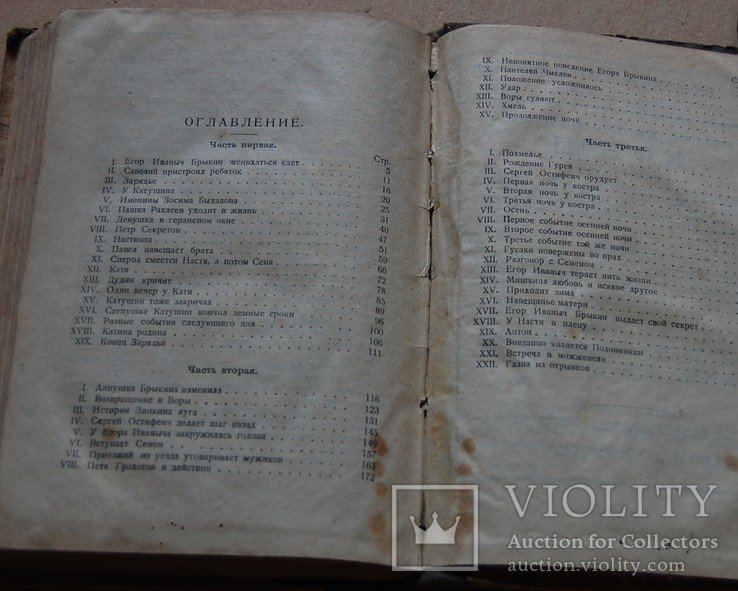 ОГЛАВЛЕНИЕ.
Часть первая.
Стр.
I. Егор Иваныч Брыкин женихаться едет 5
II. Савелий пристроил ребяток 11
III. Зарядье 16
IV. У Катушина 20
V. Именины Зосима Быхалова 25
VI. Пашка Рахлеев уходит в жизнь 31
VII. Девушка в гераневом окне 40
VIII. Петр Секретов 47
IX. Настюша 51
X. Павел навещает брата 59
XI. Сперва смеется Настя, а потом Сеня 66
XII. Катя 72
XIII. Дудин кричит 78
XIV. Один вечер у Кати 85
XV. Катушин тоже закричал 89
XVI. Степушка Катушин кончил земные сроки 96
XVII. Разные события следующего дня 100
XVIII. Катина родина 106
XIX. Конец Зарядья 111
Часть вторая.
I. Аннушка Брыкина изменила 116
II. Возвращение в Воры 123
III. История Зинкина луга 131
IV. Сергей Остифеич делает шаг назад 145
V. У Егора Иваныча закружилась голова 149
VI. Вступает Семен 157
VII. Приезжий из уезда уговаривает мужиков 163
VIII. Петя Грохотов в действии 172
IX. Непонятное поведение Егора Брыкина
X. Пантелей Чмелев
XI. Положение усложнилось
XII. Удар
XIII. Воры гуляют
XIV. Хмель
XV. Продолжение ночи
Часть третья.
I. Похмелье
II. Рождение Гурея
III. Сергей Остифеич орудует
IV. Первая ночь у костра
V. Вторая ночь у костра
VI. Третья ночь у костра
VII. Осень
VIII. Первое событие осенней ночи
IX. Второе событие осенней ночи
X. Третье событие той же ночи
XI. Гусаки повержены во прах
XII. Разговор с Семеном
XIII. Егор Иваныч теряет нить жизни
XIV. Мишкина любовь и всякое другое
XV. Приходит зима
XVI. Навещанье матери
XVII. Егор Иваныч Брыкин выдает свой секрет
XVIII. У Насти в плену
XIX. Антон
XX. Внезапно является Половинкин
XXI. Встреча в можжевеле
XXII. Глава из отрывков
VIOLITY
Auction for Collectors
auction.violity.com